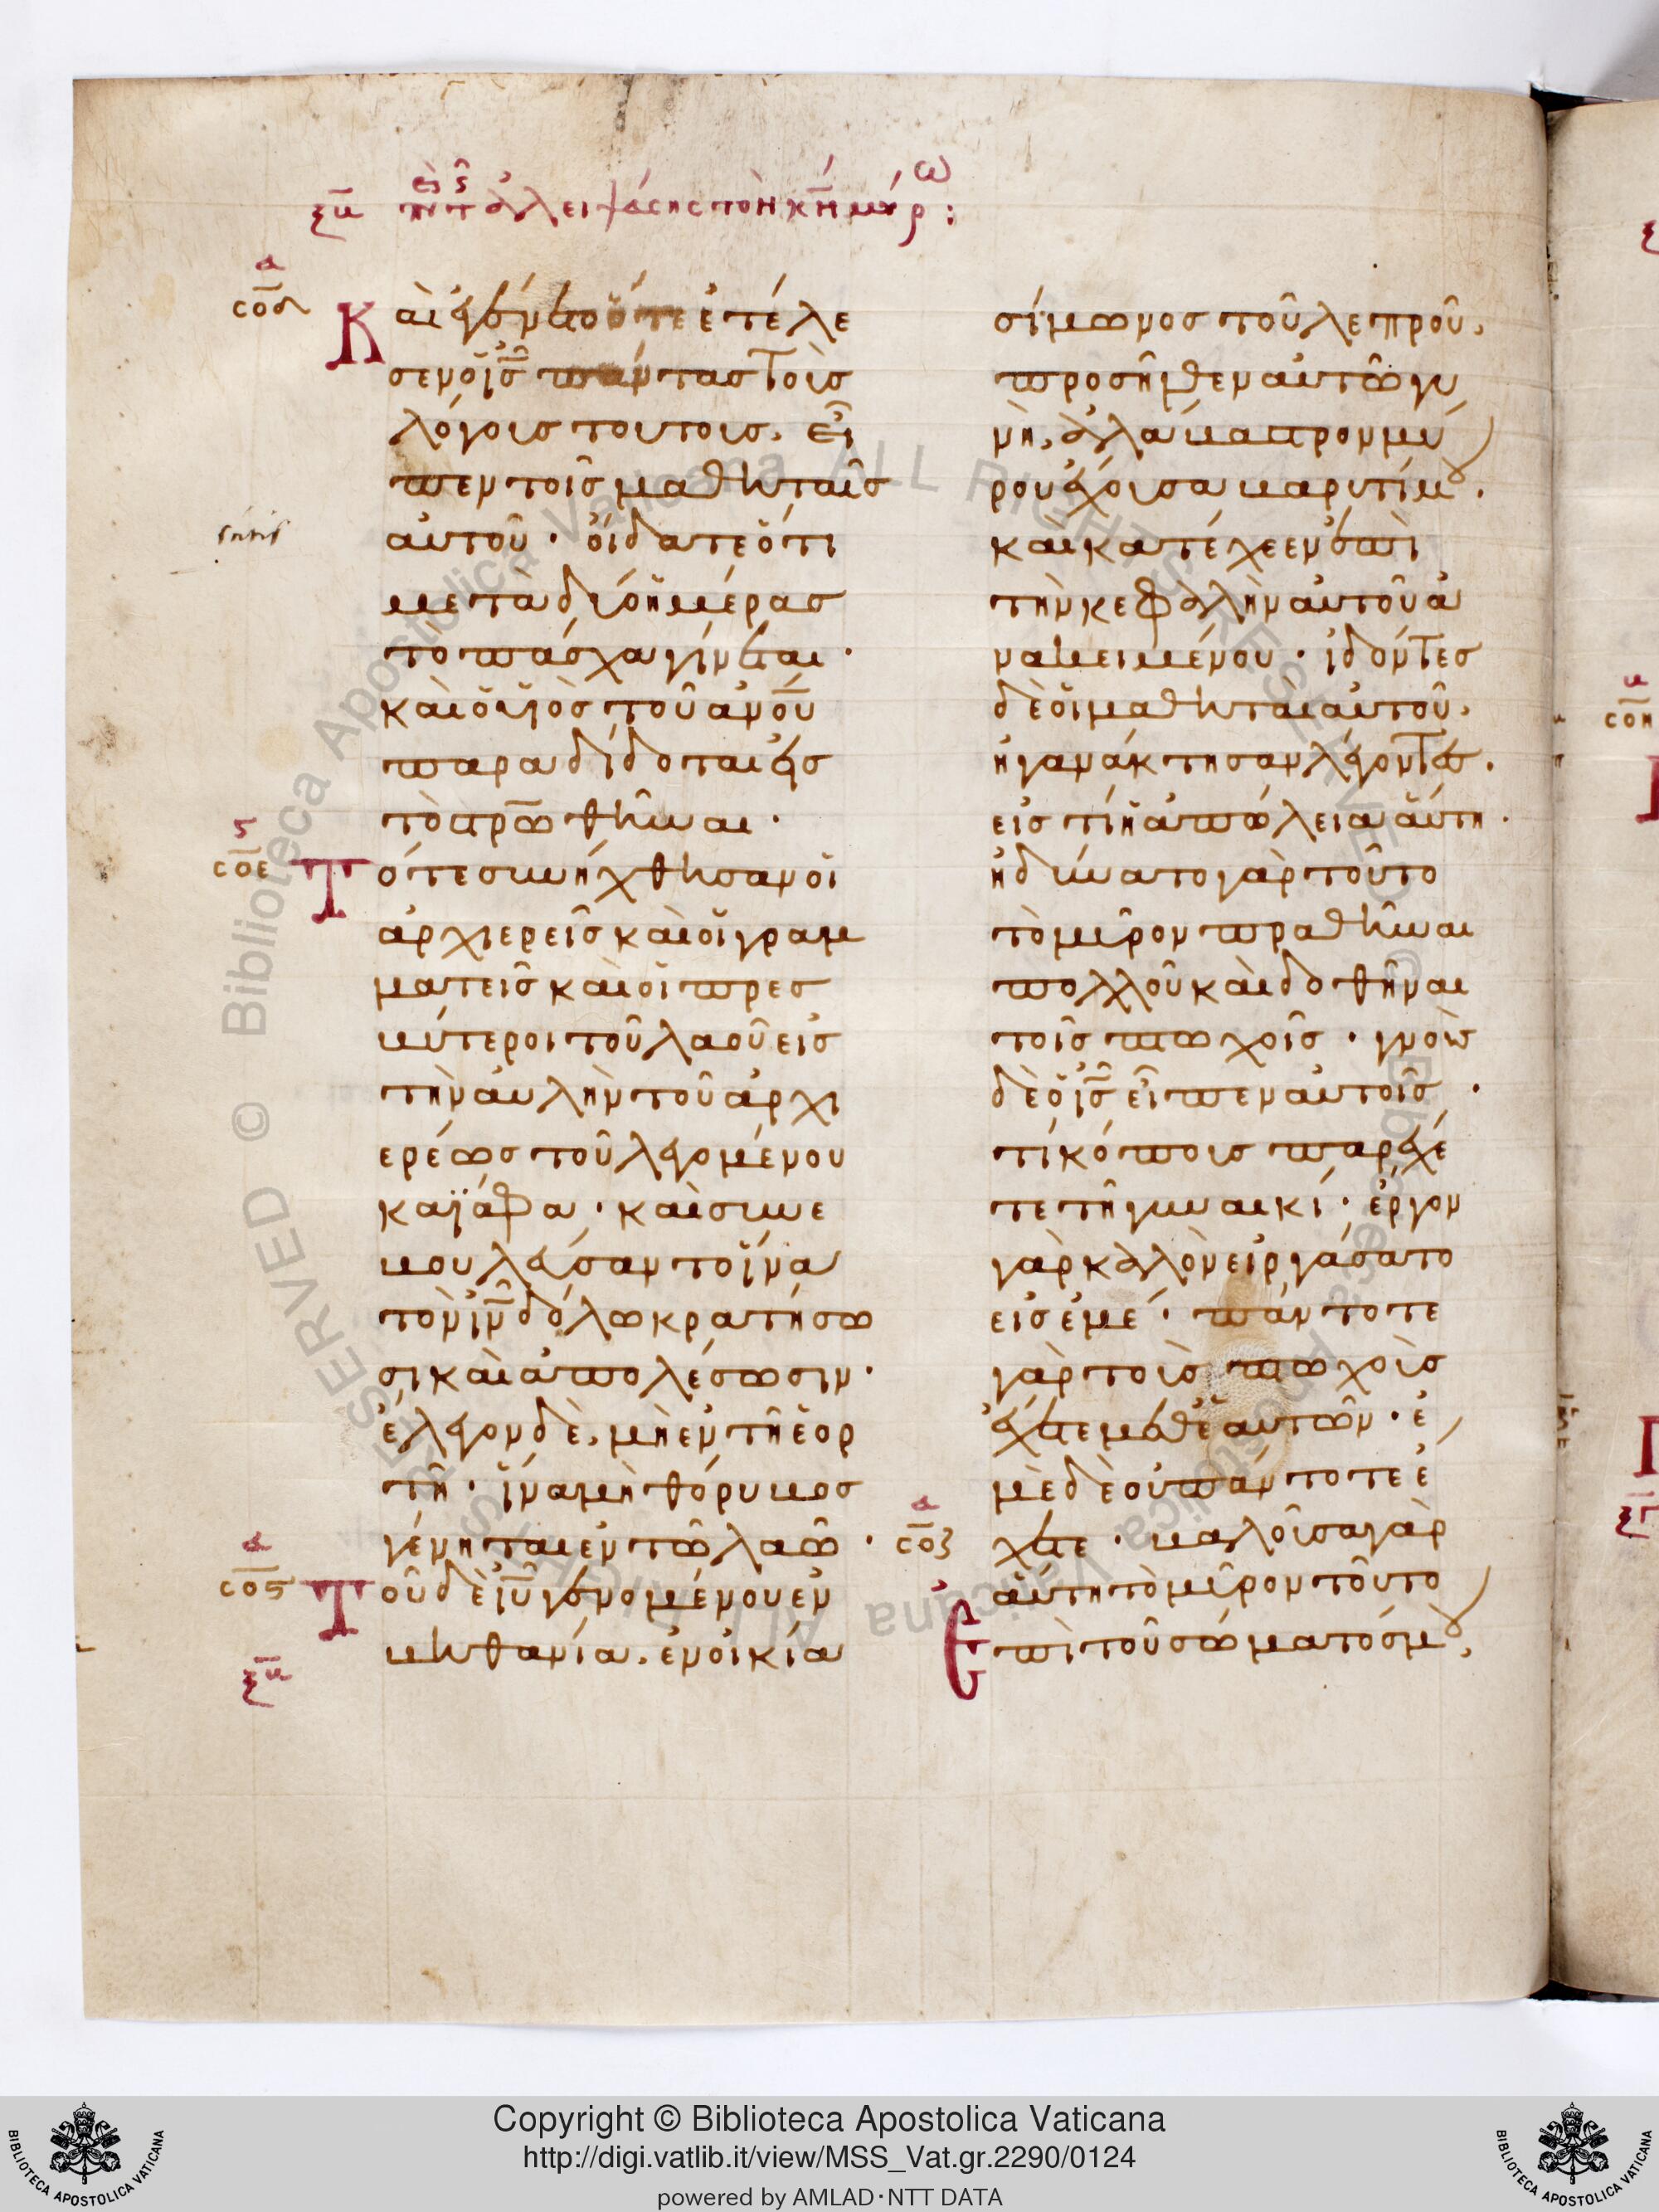 ξβ περὶ τῆς ἀλειψάσης τὸν κ̅ν̅ μύρω:
α
σοδ
Καὶ ἐγένετο ὅτε ἐτέλε
σεν ὁ ι̅ς̅ πάντας τοὺς
λόγους τούτους, εἶ
πεν τοῖς μαθηταῖς
αὐτοῦ · οἴδατε ὅτι
μετὰ δύο ἡμέρας
τὸ πάσχα γίνεται ·
καὶ ὁ υἱὸς τοῦ α̅ν̅ο̅υ̅
παραδίδοται εἰς
τὸ σ̅ρ̅ωθῆναι ·
ϛ
σοε
Τότε συνήχθησαν οἱ
ἀρχιερεῖς καὶ οἱ γραμ
ματεῖς καὶ οἱ πρες
βύτεροι τοῦ λαοῦ εἰς
τὴν αὐλὴν τοῦ ἀρχι
ερέως τοῦ λεγομένου
καϊάφα · καὶ συνε
βουλεύσαντο ἵνα
τὸν ι̅ν̅ δόλω κρατήσω
σι καὶ ἀπολέσωσιν ·
ἔλεγον δὲ, μὴ ἐν τῆ ἑορ
τῆ · ἵνα μὴ θόρυβος
γένηται ἐν τῶ λαῶ ·
α
σοϛ
Τοῦ δὲ ι̅υ̅ γενομένου ἐν
βηθανία, ἐν οἰκία
ξβ
σίμωνος τοῦ λεπροῦ,
προσῆλθεν αὐτῶ γυ
νὴ, ἀλάβαστρον μύ
ρου ἔχουσα βαρυτίμου ·
καὶ κατέχεεν ἐπὶ
τὴν κεφαλὴν αὐτοῦ ἀ
νακειμένου · ἰδόντες
δὲ οἱ μαθηταὶ αὐτοῦ,
ἠγανάκτησαν λέγοντες,
εἰς τί ἡ ἀπώλεια αὕτη ·
ἠδύνατο γὰρ τοῦτο
τὸ μύρον πραθῆναι
πολλοῦ καὶ δοθῆναι
τοῖς πτωχοῖς · γνοὺς
δὲ ὁ ι̅ς̅ εἶπεν αὐτοῖς ·
τί κόπους παρέχε
τε τῆ γυναικί · ἔργον
γὰρ καλὸν εἰργάσατο
εἰς ἐμέ · πάντοτε
γὰρ τοὺς πτωχοὺς
ἔχετε μεθ' ἑαυτῶν · ἐ
μὲ δὲ οὐ πάντοτε ἔ
α
σοζ
χετε · βαλοῦσα γὰρ
αὕτη τὸ μύρον τοῦτο
Ἐπὶ τοῦ σώματός μου,
Copyright © Biblioteca Apostolica Vaticana
http://digi.vatlib.it/view/MSS_Vat.gr.2290/0124
powered by AMLAD·NTT DATA